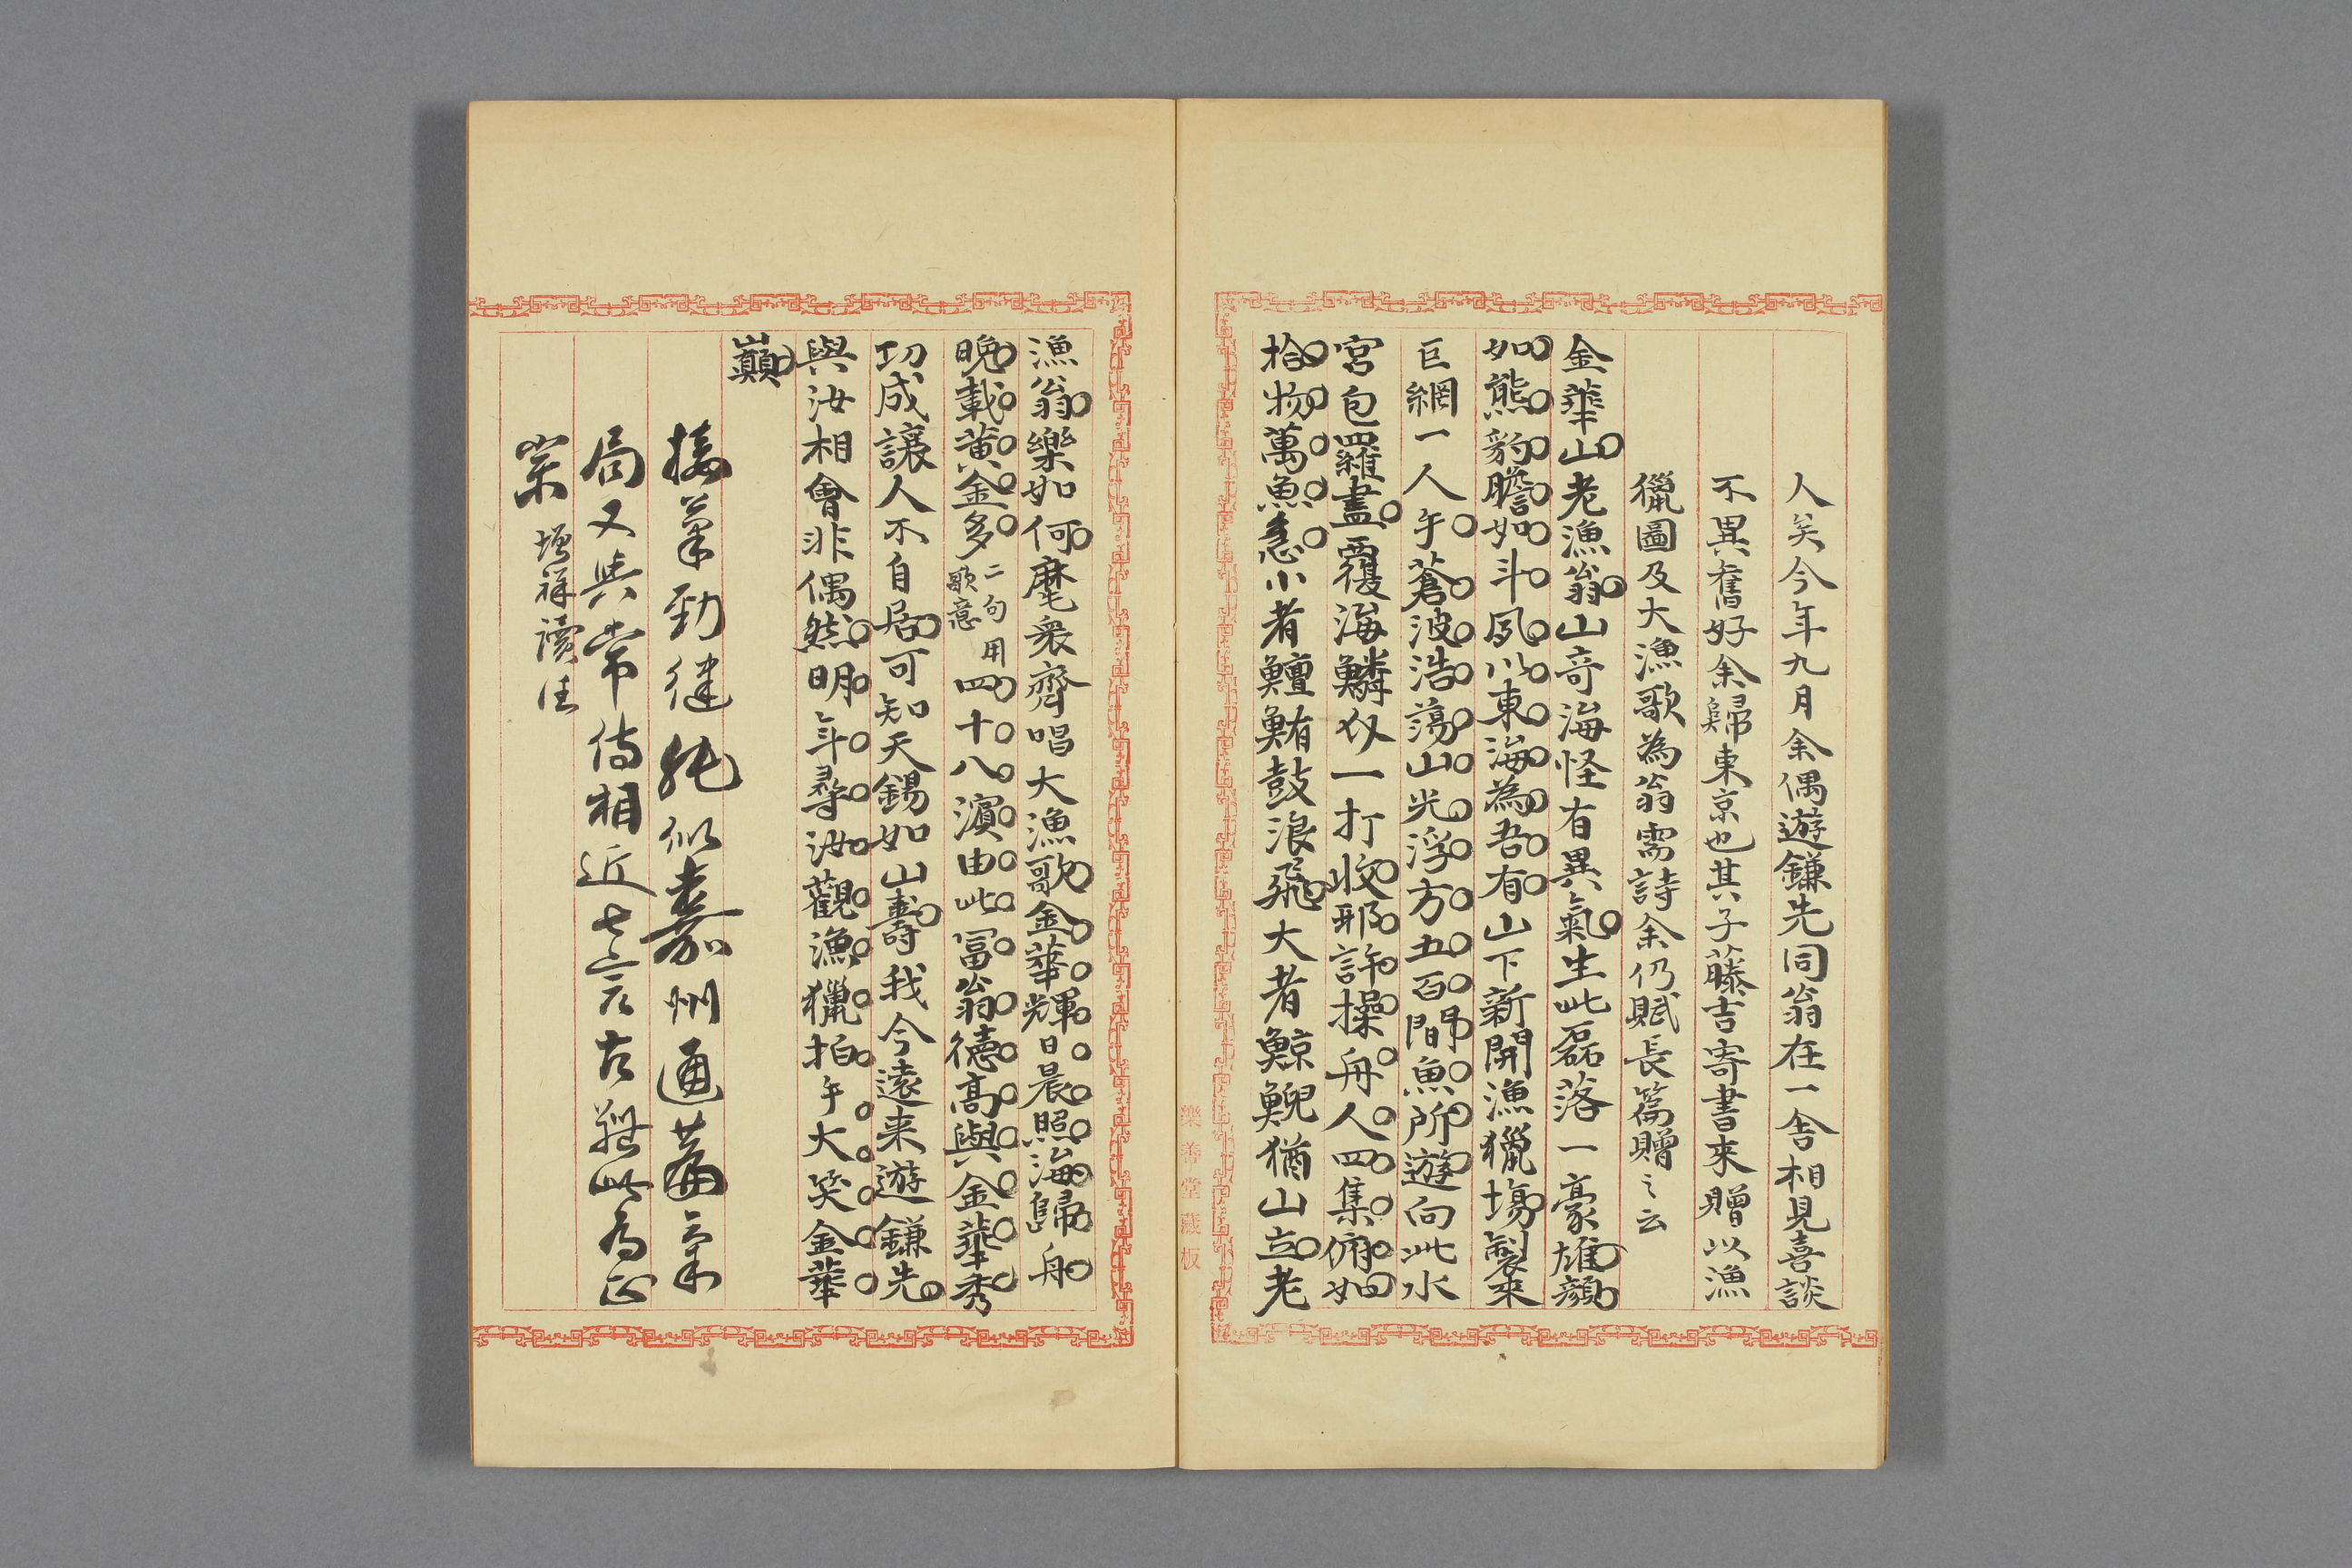 人矣今年九月余偶遊鎌先同翁在一舎相見喜談
不異舊好余歸東京也其子藤吉寄書來贈以漁
獵圖及大漁歌為翁需詩余仍賦長篇贈之云
金華山老漁翁山奇海怪有異氣生此磊落一豪雄顏
如熊豹膽如斗夙以東海為吾有山下新開漁獵場製來
巨網一人手蒼波浩蕩山光浮方五百間魚所遊向此水
宮包羅盡覆海鱗介一打收耶許操舟人四集俯如
拾物萬魚急小者鱣鮪鼓浪飛大者鯨鯢猶山立老
漁翁樂如何麾衆齊唱大漁歌金華輝日晨照海歸舟
晚載黄金多二句用歌意四十八濱由此冨翁德高與金華秀
功成讓人不自居可知天錫如山壽我今遠来遊鎌先
與汝相會非偶然明年尋汝觀漁獵拍手大笑金華
巔
接筆勁健純似嘉州通篇氣
局又與常侍相近七言古推此為正
宗 增祥讀注
樂善堂藏板